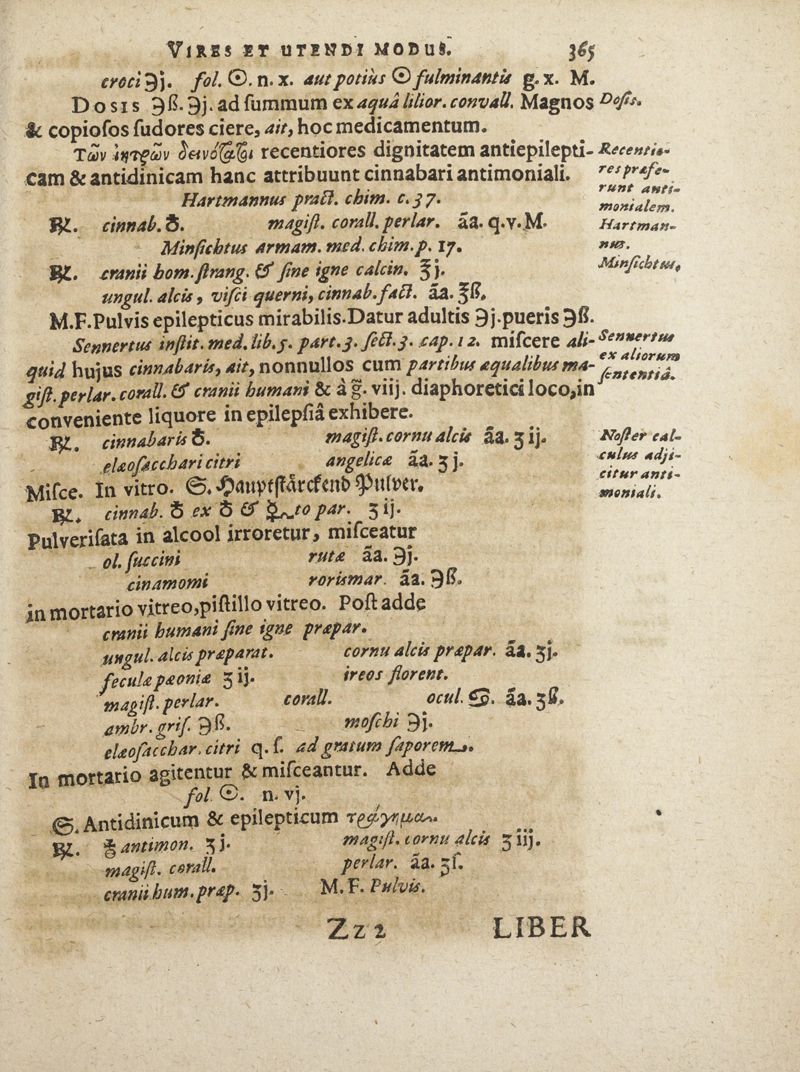 VIRES ET UTENDI MODUS. 365
croci ℈j. fol. ☉. n. x. aut potiùs ☉ fulminantis g. x. M.
Dosis ℈ß. ℈j. ad summum ex aquâ lilior. convall. Magnos
Dosis.
& copiosos sudores ciere, ait, hoc medicamentum.
Τῶν ἰητρῶν recentiores dignitatem antiepilepti-
cam & antidinicam hanc attribuunt cinnabari antimoniali.
Recentio-
res præfe-
runt anti-
monialem.
Hartmannus pract. chim. c. 37.
℞. cinnab. ♁. magist. corall. perlar. āā. q. v. M.
Hartman-
nus.
Minsichtus armam. med. chim. p. 17.
℞. cranii hom. strang. & sine igne calcin. ℥j.
Minsichtus.
ungul. alcis, visci querni, cinnab. fact. āā. ℥ß.
M.F. Pulvis epilepticus mirabilis. Datur adultis ℈j. pueris ℈ß.
Sennertus instit. med. lib. 5. part. 3. sect. 3. cap. 12. miscere ali-
quid hujus cinnabaris, ait, nonnullos cum partibus æqualibus ma-
gist. perlar. corall. & cranii humani & à g. viij. diaphoretici loco, in
conveniente liquore in epilepsiâ exhibere.
Sennertus
ex aliorum
sententiâ.
℞. cinnabaris ♁. magist. cornu alcis āā. ʒ ij.
elæosacchari citri angelicæ āā. ʒ j.
Misce. In vitro. S. Hauptstärckend Pulver.
Noster cal-
culus adji-
citur anti-
moniali.
℞. cinnab. ♁ ex ♁ & to par. ʒ ij.
Pulverisata in alcool irroretur, misceatur
ol. succini rutæ āā. ℈j.
cinamomi rorismar. āā. ℈ß.
in mortario vitreo, pistillo vitreo. Post adde
cranii humani sine igne præpar.
ungul. alcis præparat. cornu alcis præpar. āā. ʒj.
feculæ pæoniæ ʒ ij. ireos florent.
magist. perlar. corall. ocul. ♋. āā. ʒß.
ambr. gris. ℈ß. moschi ℈j.
elæosacchar. citri q. s. ad gratum saporem.
In mortario agitentur & misceantur. Adde
fol. ☉. n. vj.
S. Antidinicum & epilepticum
℞. antimon. ʒ j. magist. cornu alcis ʒ iij.
magist. corall. perlar. āā. ʒs.
cranii hum. præp. ʒj. M. F. Pulvis.
Zz 2 LIBER